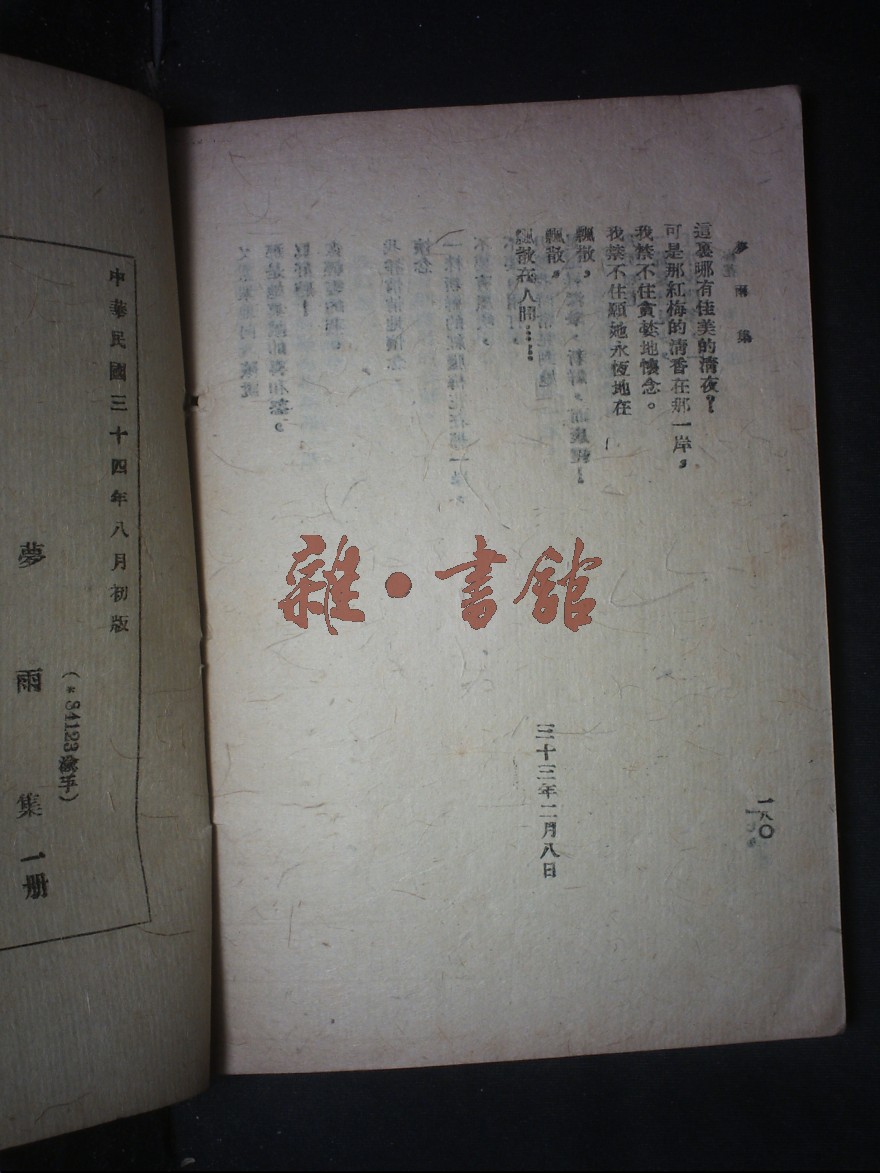 夢雨集
這裏哪有佳美的清夜？
可是那紅梅的清香在那一岸，
我禁不住貪婪地懷念。
我禁不住願她永恆地在
飄散，
飄散，
飄散在人間……
三十三年二月八日
一八〇
雜·書館
中華民國三十四年八月初版
(*84123渝手)
夢雨集一册